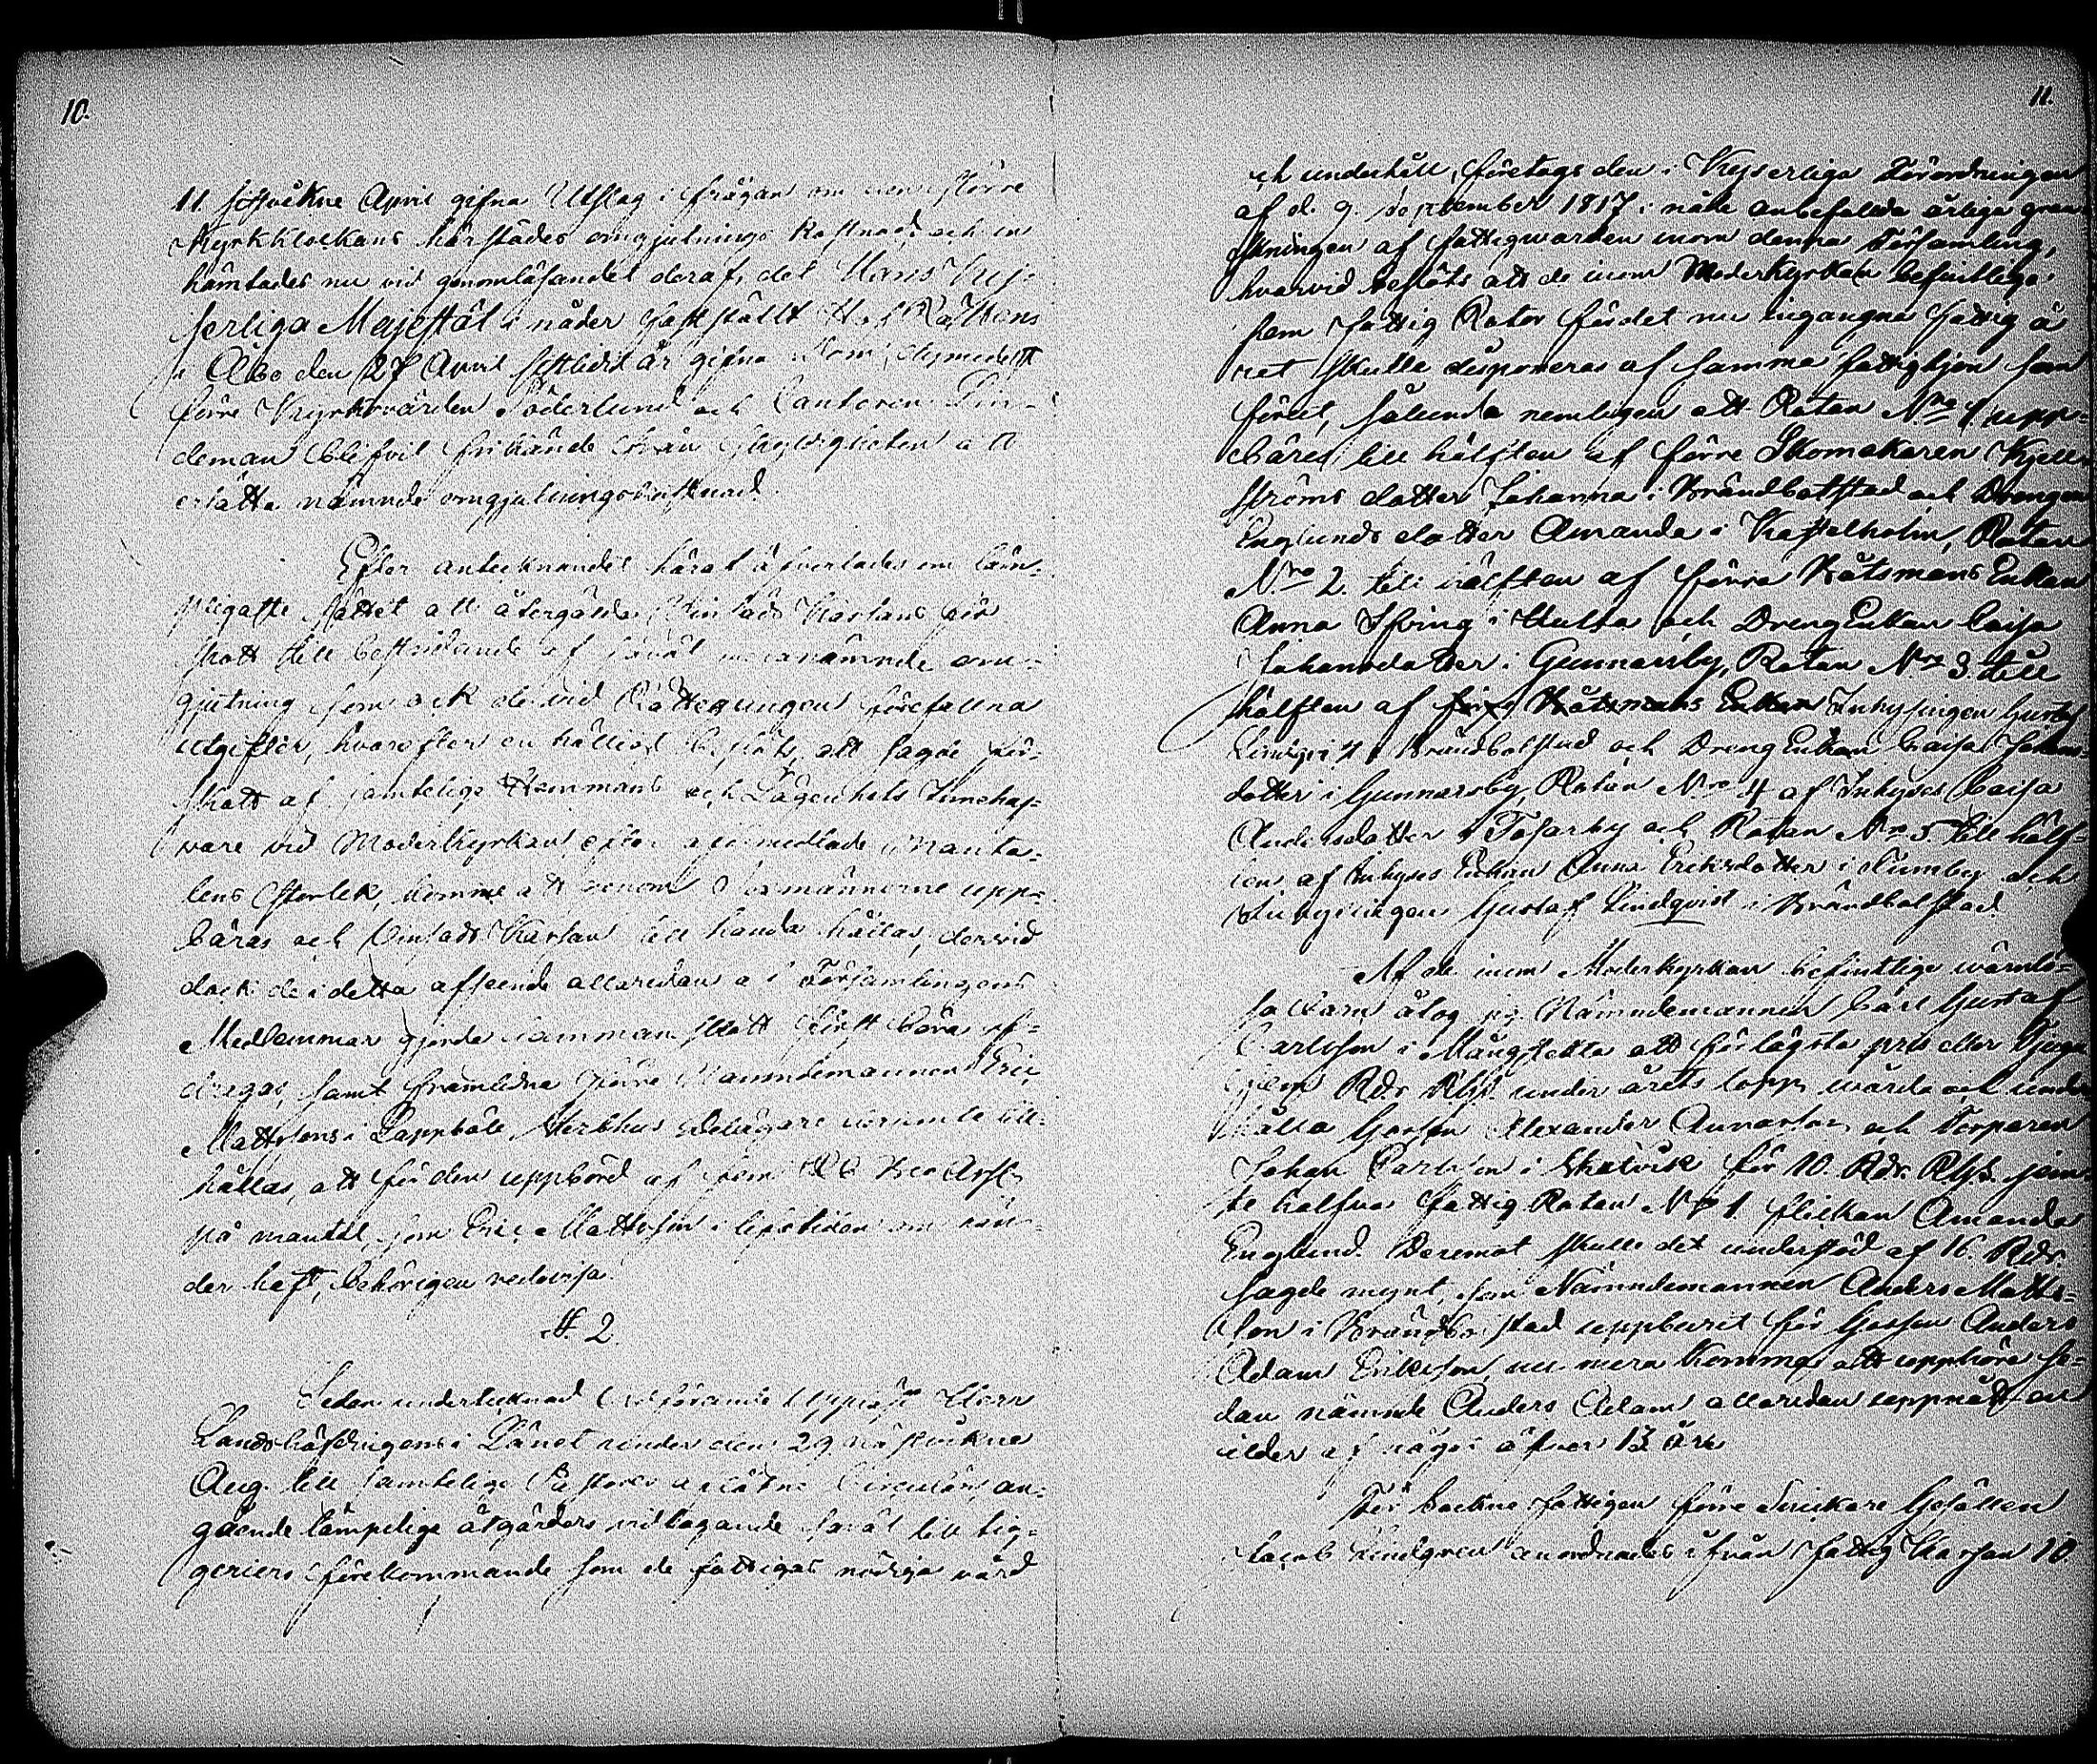 10.
11 sistlidne April gifna Utslag i frågan om den större
Kyrkklockans härstädes omgjutnings kostnad, och in
hämtades nu vid genomläsandet deraf, det Hans Kej-
serliga Majestät i nåder fastställt Hof Rättens
i Åbo den 27 April sistledit år gifna Dom, dymedelst
förre Kyrkovärden Söderlund och Cantoren Lin-
deman blifvit frikände ifrån skyldigheten att
ersätta nämnde omgjutningskostnad.
Efter antecknandet häraf öfverlades om läm-
pligaste sättet att återgälda Vin sads Kassans för
skott till bestridande af såväl merannämnde om-
gjutning som ock de vid Rättegången förefallna
utgifter, hvarefter en hälligt beslöts, att sagde för-
skott af samtelige Hemmans och Lägenhets Innehaf-
vare vid Moderkyrkan, efter oförmedlade manta-
lens storlek, komme att genom Sexmännerne upp-
bäras och Vinsads Kassan till handa hållas, dervid
dock de i detta afseende allaredan a f Församlingens
Medlemmar gjorde sammanskott först böra af-
dragas, samt framlidne förre Nämndemannen Eric
Mattssons i Lappböle Sterbhus delägare borde till-
hållas, att för den uppbörd af fem
på mantal, som Eric Mattsson i lifstiden om hän-
der haft, behörigen redovisa.
№ 2.
Sedan undertecknad Ordförande uppläst Herr
Landshöfdingens i Länet under den 29 nästvikne
Aug. till samtelige Pastorer aflåtne Circulär, an-
gående lämpelige åtgärders vidtagande såväl till tig-
geriers förekommande som de fattigas nödiga vård
11.
och underhåll, företogs den i Kejserliga Förordningen
af d. 9. September 1817 i nåde anbefallde årliga gran-
skningen af fattigvården inom denna Församling,
hvarvid beslöts att de inom Moderkyrkan befintlige
fem Fattig Rotor för det nu ingångna fattig å
ret skulle disponeras af samma fattighjon som
förut, sålunda nemligen att Rotan Nro 1 upp-
bäres till hälften af förre Skomakaren Kjell-
ströms dotter Johanna i Brändbolstad och Drengen
Englunds dotter Amanda i Kastelholm, Rotan
Nro 2. till hälften af förre Båtsmans Enkan
Anna Spring i Hulta och DrengEnkan Caisa
Johansdotter i Gunnarsby, Rotan Nro 3. till
hälften af förre Båtsmans Enkan Inhysingen Gustaf
Lindqvist i Brändbolstad och Dreng Enkan Caisa Johans-
dotter i Gunnarsby, Rotan Nro 4 af Inhyses Caisa
Andersdotter i Tosarby och Rotan Nro 5 till hälf-
ten af Inhyses Enkan Anna Eriksdotter i Rumby och
Inhysingen Gustaf Lindqvist i Brändbolstad.
Af de inom Moderkyrkan befintlige värnlö-
sa Barn åtog sig Nämndemannen Carl Gustaf
Carlsson i Mångstekta att för lägsta pris eller Tjugu
fem Rdr Rgs. under årets lopp vårda och under
hålla Gossen Alexander Annasson och Torparen
Johan Carlsson i Skalvik för 10. Rdr. Rgs. jem
te halfva Fattig Rotan Nro 1. flickan Amanda
Englund. Deremot skulle det understöd af 16. Rdr.
sagde mynt, som Nämndemannen Anders Matts-
son i Brändbolstad uppburit för Gossen Anders
Adam Eriksson, nu mera komma att upphöra se-
dan nämnde Anders Adam allaredan uppnått en
ålder af något öfver 13 år.
För backne fattigen förre Snickare Gesällen
Jacob Lindgren anordnades ifrån Fattig Kassan 10